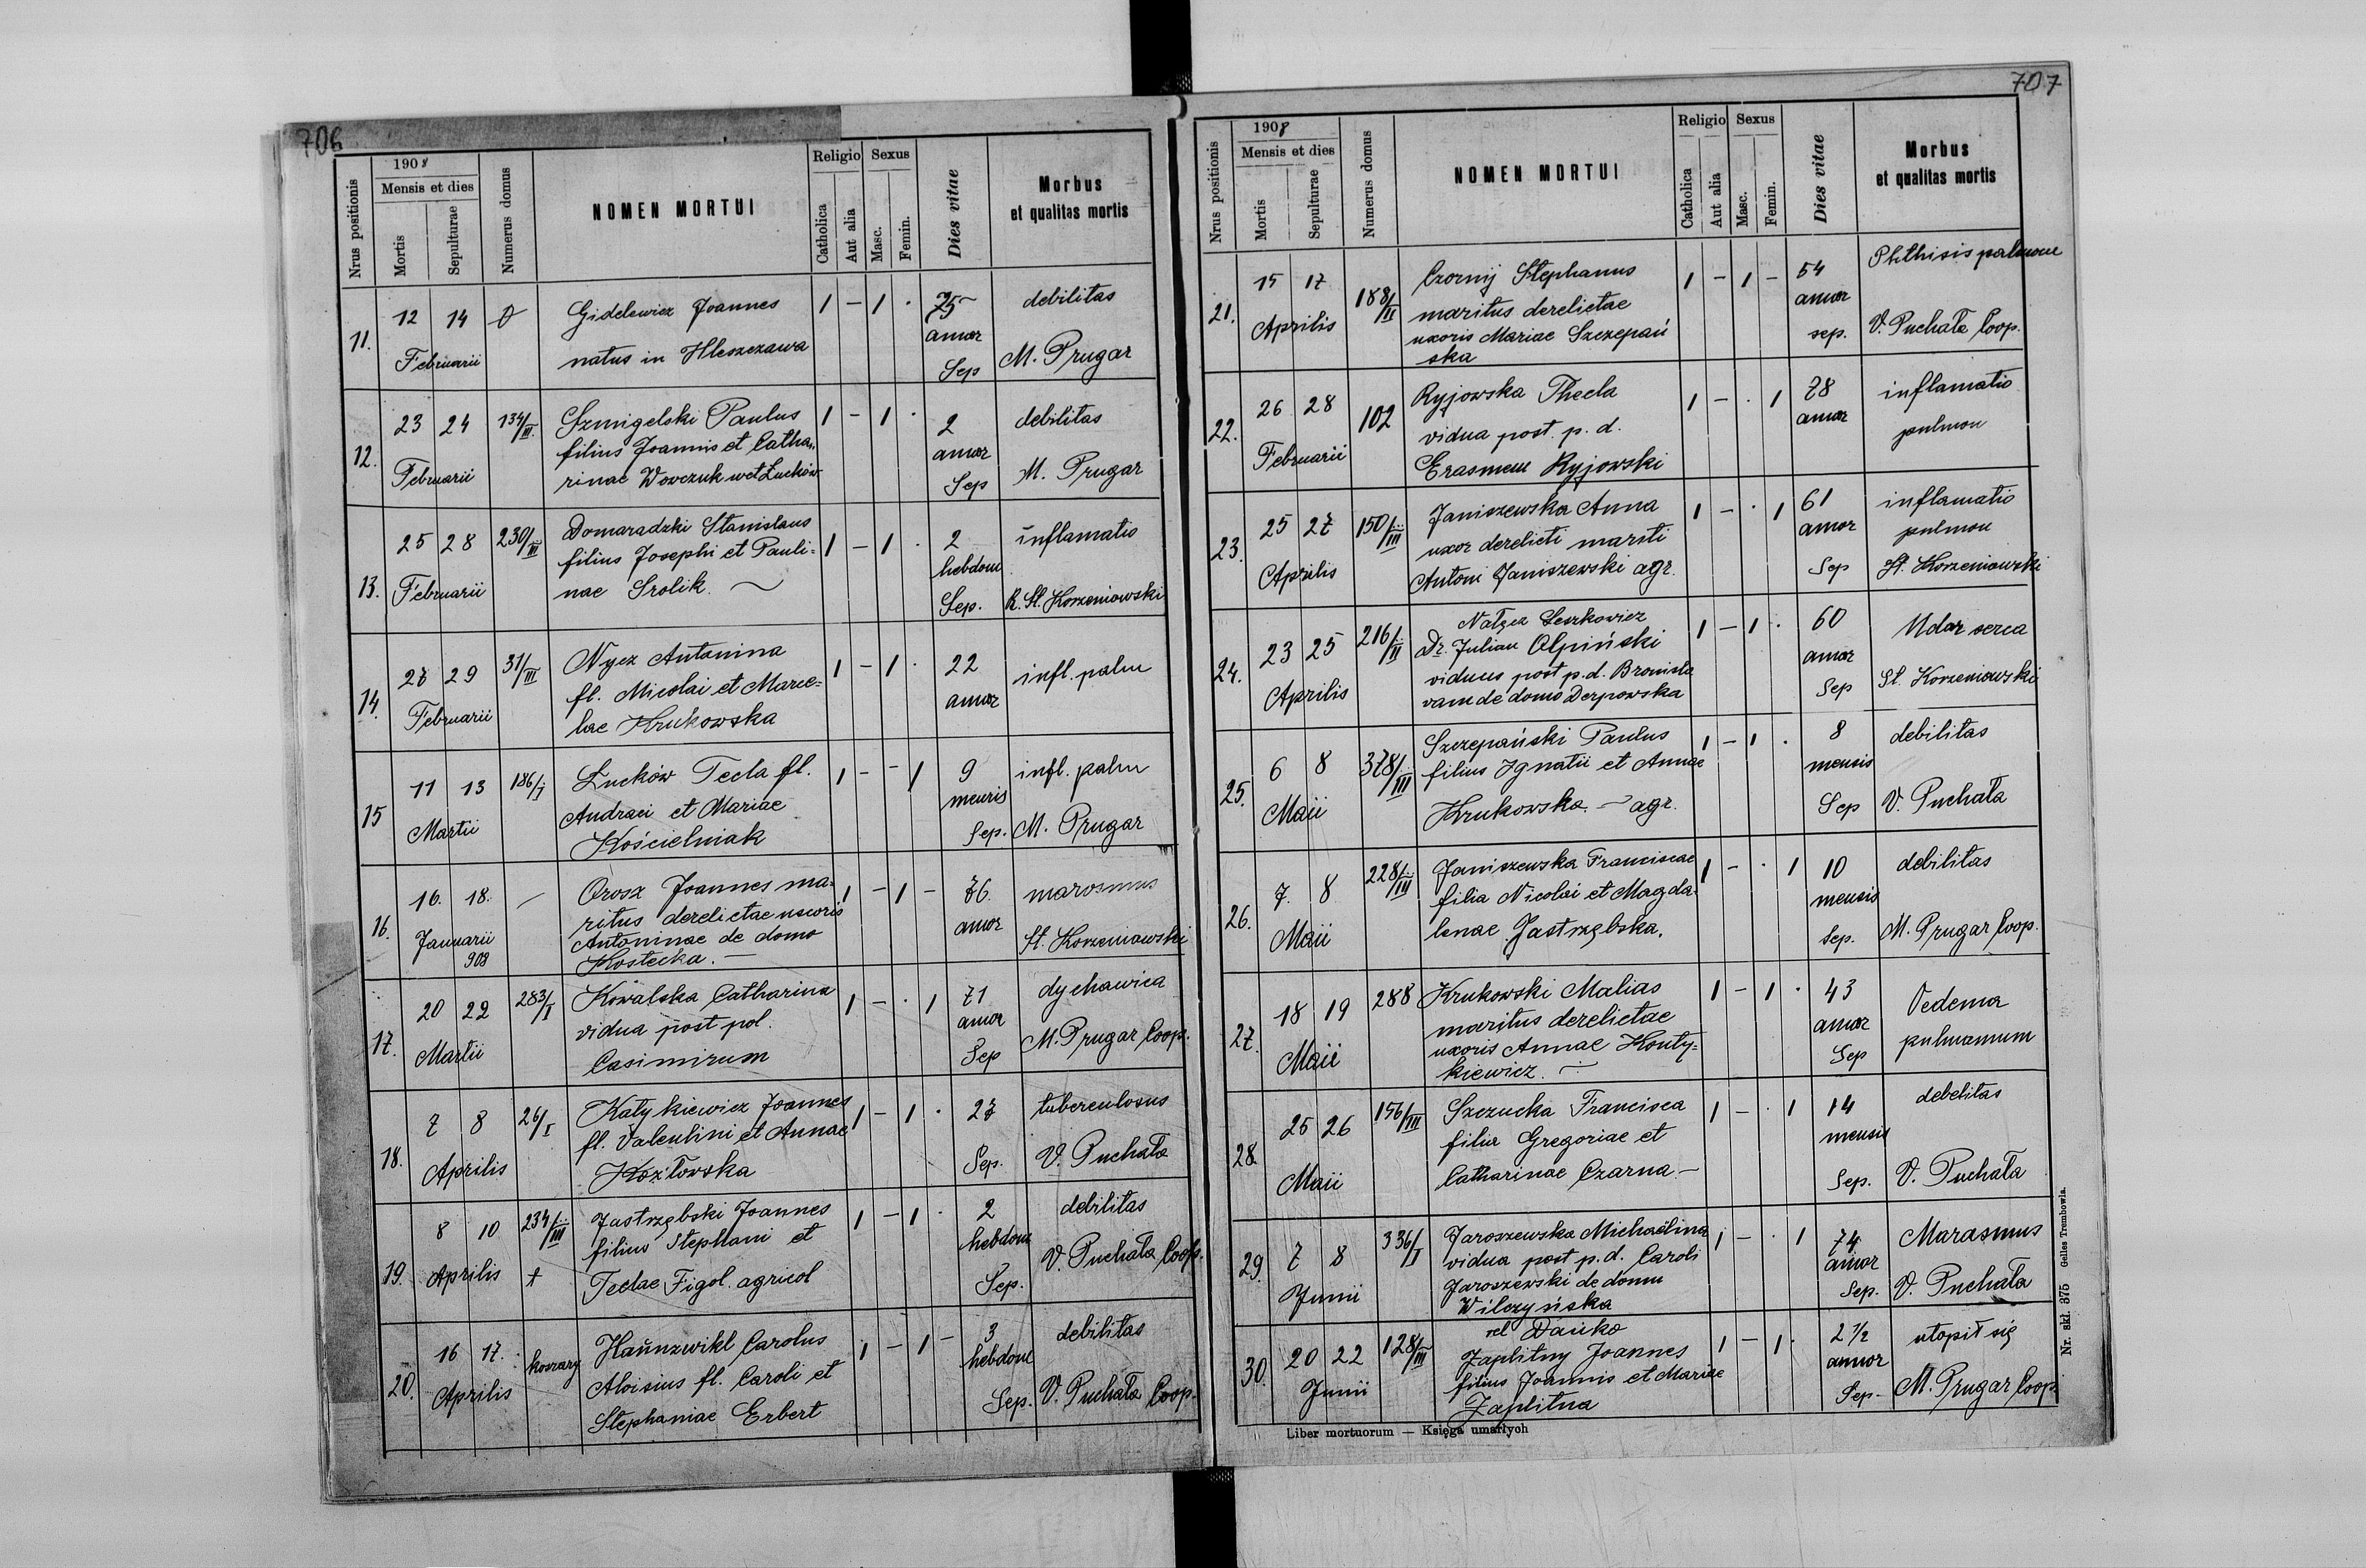 706
Nrus positionis
1908
Mensis et dies
Mortis
Sepulturae
Numerus domus
NOMEN MORTUI
Religio
Catholica
Aut alia
Sexus
Masc.
Femin.
Dies vitae
Morbus
et qualitas mortis
11. 12 14 Februarii
Gidelewicz Joannes
natus in Hleszczawa
1 – 1 ·
75
annor
Sep
debilitas
M. Prugar
12. 23 24 Februarii 134/III.
Szmigelski Paulus
filius Joannis et Catha„
rinae Wowczuk wet Łucków
1 – 1 ·
2
annor
Sep
debilitas
M. Prugar
13. 25 28 Februarii 230/III
Domaradzki Stanislaus
filius Josephi et Pauli=
nae Srolik. ~
1 – 1 ·
2
hebdom
Sep.
inflamatio
K. St. Korzeniowski
14. 27 29 Februarii 31/III
Nycz Antonina
fl. Micolai et Marce=
lae Krukowska
1 – 1 ·
22
annor
infl. palm
15 11 13 Martii 186/I
Łucków Tecla fl.
Andraei et Mariae
Kościelniak
1 – – 1
9
mensis
Sep.
infl. palm
M. Prugar
16. 16. 18. Januarii 908 –
Orosz Joannes ma=
ritus derelictae uxoris
Antoninae de domo
Kostecka. –
1 – 1 –
76.
annor
marosmus
St. Korzeniowski
17. 20 22 Martii 283/I
Kowalska Catharina
vidua post pol.
Casimirum
1 – · 1
71
annor
Sep
dychawica
M. Prugar Coop.
18. 7 8 Aprilis 26/I
Katykiewicz Joannes
fl. Valentini et Annae
Kozłowska
1 – 1 ·
27
Sep.
tuberculosus
V. Puchała
19. 8 10 Aprilis 234/III †
Jastrzębski Joannes
filius Stephani et
Teclae Figol. agricol
1 – 1 ·
2
hebdom
Sep.
debilitas
V. Puchała Coop.
20. 16 17. Aprilis koszary
Haŭnzwikl Carolus
Aloisius fl. Caroli et
Stephaniae Erbert
1 – 1 –
3
hebdom
Sep.
debilitas
V. Puchała Coop.
707
Nrus positionis
1908
Mensis et dies
Mortis
Sepulturae
Numerus domus
NOMEN MORTUI
Religio
Catholica
Aut alia
Sexus
Masc.
Femin.
Dies vitae
Morbus
et qualitas mortis
21. 15 17 Aprilis 188/II
Czornij Stephanus
maritus derelictae
uxoris Mariae Szczepań
ska
1 – 1 –
54
annor
sep.
Phthisis palmone
V. Puchała Coop.
22. 26 28 Februarii 102
Ryjowska Thecla
vidua post. p. d.
Erasmem Ryjowski
1 – · 1
78
annor
inflamatio
pulmon
23. 25 27 Aprilis 150/III
Janiszewska Anna
uxor derelicti mariti
Antoni Janiszewski agr.
1 – · 1
61
annor
Sep
inflamatio
pulmon
St. Korzeniowski
24. 23 25 Aprilis 216/II
Nałęcz Leszkowicz
Dr. Julian Olpiński
viduus post p. d. Bronisla
vam de domo Derpowska
1 – 1 ·
60
annor
Sep
Udar serca
St. Korzeniowski
25. 6 8 Maii 378/III
Szczepański Paulus
filius Ignatii et Annae
Krukowska. ~ agr.
1 – 1 ·
8
mensis
Sep
debilitas
V. Puchała
26. 7. 8 Maii 228/III
Janiszewska Franciscae
filia Nicolai et Magda=
lenae Jastrzębska.
1 – · 1
10
mensis
Sep.
debilitas
M. Prugar Coop.
27. 18 19 Maii 288
Krukowski Malias
maritus derelictae
uxoris Annae Honty=
kiewicz. ~
1 – 1 ·
43
annor
Sep
Oedema
pulmanum
28 25 26 Maii 156/III
Szczucka Francisca
filia Gregoriae et
Catharinae Czarna –
1 – · 1
14
mensis
Sep.
debelitas
V. Puchała
29. 7 8 Junii 336/I
Jaroszewska Michaëlina
vidua post p. d. Caroli
Jaroszewski de domu
Wilczyńska
1 – · 1
74
annor
Sep.
Marasmus
V. Puchała
30. 20 22 Junii 128/III
vel Dańko
Zaplitny Joannes
filius Joannis et Mariae
Zaplitna
1 – 1 ·
2 1/2
annor
Sep.
utopił się
M. Prugar Coop.
Liber mortuorum — Księga umarłych
Nr. skł. 375 Gelles Trembowla.